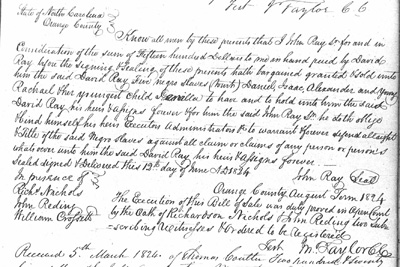 Test J Taylor CC
State of North Carolina
Orange County
Know all men by these presents that I John Ray Sr for and in
Consideration of the sum of Fifteen hundred Dollars to me in hand paid by David
Ray upon the signing & Sealing of these presents hath bargained granted & sold unto
him the said David Ray Five negro Slaves (to wit) Daniel, Isaac, Alexander, and Young
Rachael & her youngest child to have and to hold unto him the said
David Ray his heirs & assigns forever & for him the said John Ray Sr he doth oblige
& bind himself his heirs Executors & Administrators &c to warrant forever signed all right
& title of the said Negro Slaves against all claim or claims of any person or person's
whatsoever unto him the said David Ray his heirs & assigns forever
Sealed signed & Delivered this 12th day of June AD 1824
John Ray Seal
In presence of
Orange County August Term 1824
Richd Nichols
The Execution of this Bill of Sale was duly proved in Open Court
John Reding
by the Oath of Richardson Nichols & John Reding two Sub-
William
scribing Witnesses & Ordered to be Registered
Test M. Taylor CC
Received 5th March 1824 of Thomas Coulter Two hundred & Seventy